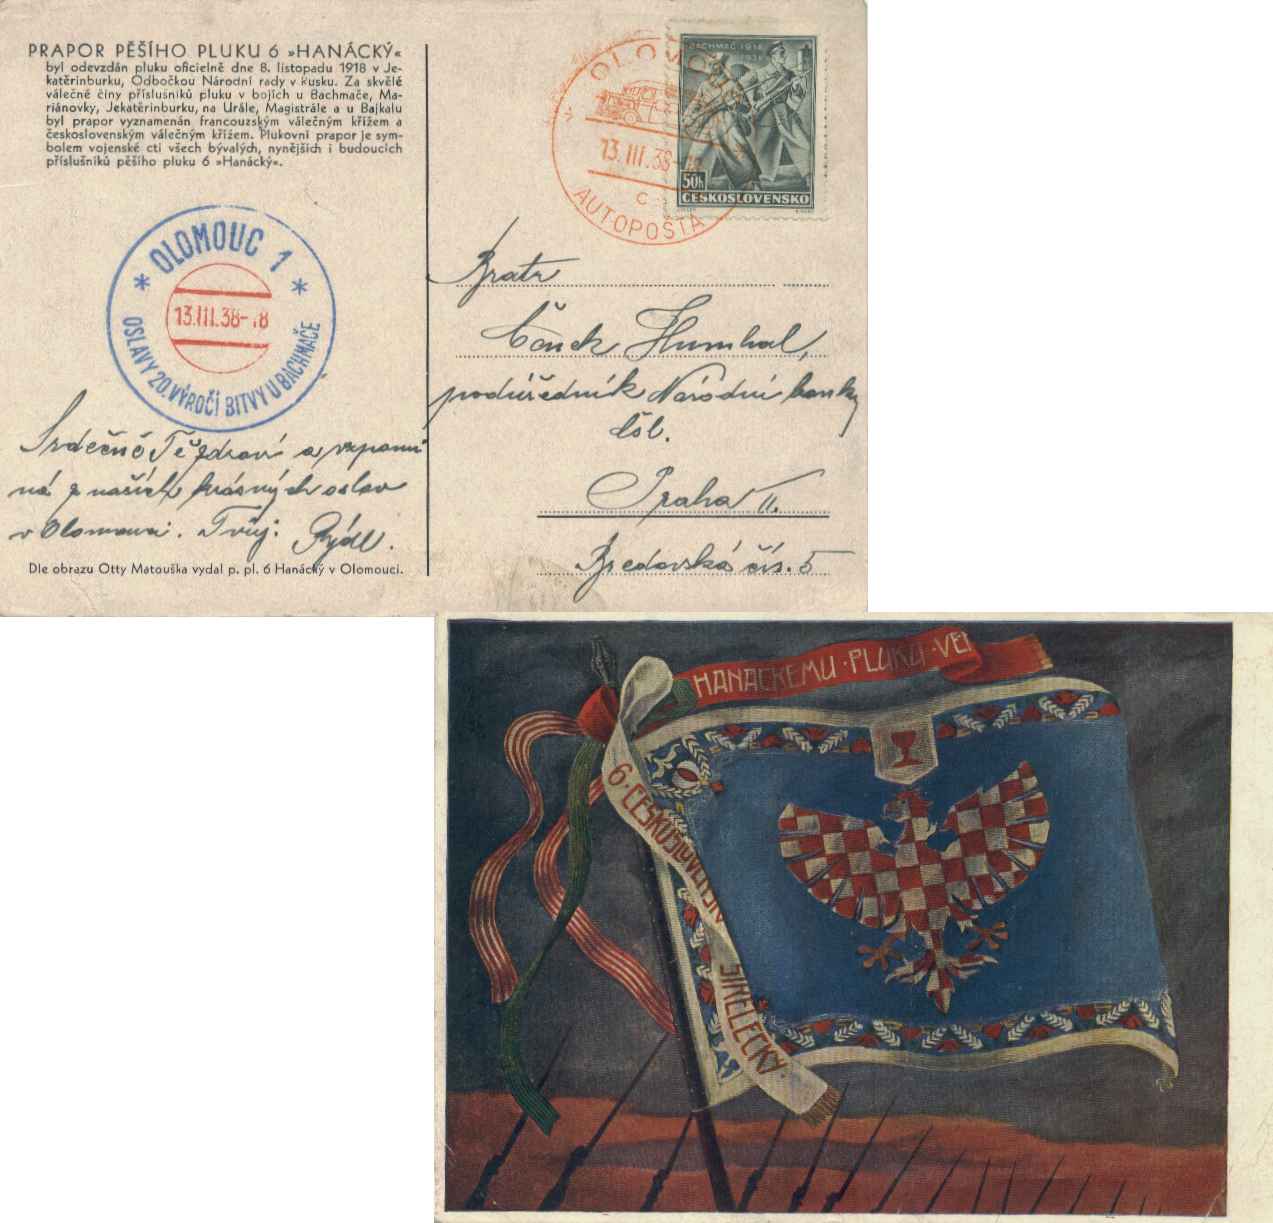 PRAPOR PĚŠÍHO PLUKU 6 »HANÁCKÝ«
byl odevzdán pluku oficielně dne 8. listopadu 1918 v Je-
katěrinburku, Odbočkou Národní rady v Rusku. Za skvělé
válečné činy příslušníků pluku v bojích u Bachmače, Ma-
riánovky, Jekatěrinburku, na Urále, Magistrále a u Bajkalu
byl prapor vyznamenán francouzským válečným křížem a
československým válečným křížem. Plukovní prapor je sym-
bolem vojenské cti všech bývalých, nynějších i budoucích
příslušníků pěšího pluku 6 »Hanácký«.
OLOMOUC 1
13.III.38-18
OSLAVY 20. VÝROČÍ BITVY U BACHMAČE
Srdečně Tě zdraví a vzpomí
ná z našich krásných oslav
v Olomouci. Tvůj: Rýdl.
Dle obrazu Otty Matouška vydal p. pl. 6 Hanácký v Olomouci.
OLOMOUC
13.III.38
C
AUTOPOŠTA
BACHMAČ 1918
1938
50h
ČESKOSLOVENSKO
Bratr
Čeněk Humhal,
podúředník Národní banky
čsl.
Praha II.
Bredovská čís. 5
HANÁCKÉMU · PLUKU · VE
6 · ČESKOSLOVENSK
STŘELECKÝ ·